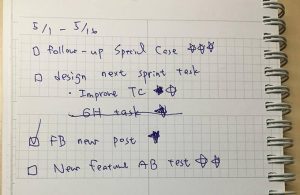 5/1 - 5/16
follow-up Special Case
design next sprint task
· Improve TC
GH task
FB new post
New feature AB test